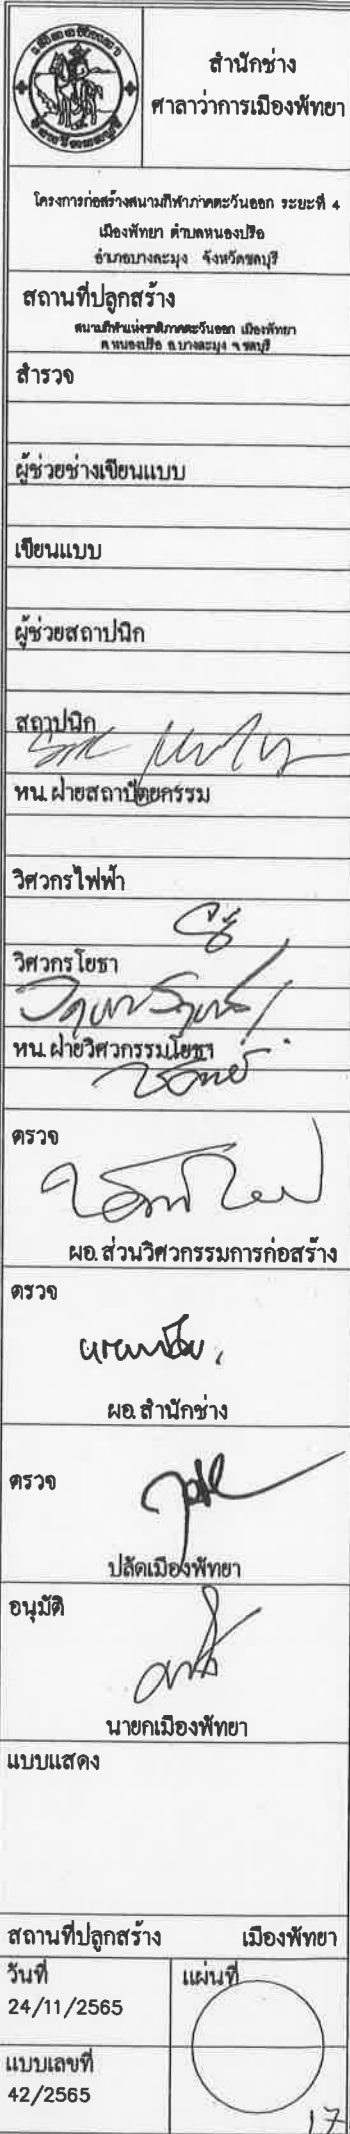 เมืองพัทยา
จังหวัดชลบุรี
สำนักช่าง
ศาลาว่าการเมืองพัทยา
โครงการก่อสร้างสนามกีฬาภาคตะวันออก ระยะที่ 4
เมืองพัทยา ตำบลหนองปรือ
อำเภอบางละมุง จังหวัดชลบุรี
สถานที่ปลูกสร้าง
สนามกีฬาแห่งชาติภาคตะวันออก เมืองพัทยา
ต.หนองปรือ อ.บางละมุง จ.ชลบุรี
สำรวจ
ผู้ช่วยช่างเขียนแบบ
เขียนแบบ
ผู้ช่วยสถาปนิก
สถาปนิก
หน. ฝ่ายสถาปัตยกรรม
วิศวกรไฟฟ้า
วิศวกรโยธา
หน. ฝ่ายวิศวกรรมโยธา
ตรวจ
ผอ. ส่วนวิศวกรรมการก่อสร้าง
ตรวจ
ผอ. สำนักช่าง
ตรวจ
ปลัดเมืองพัทยา
อนุมัติ
นายกเมืองพัทยา
แบบแสดง
สถานที่ปลูกสร้าง เมืองพัทยา
วันที่
24/11/2565
แผ่นที่
แบบเลขที่
42/2565
17